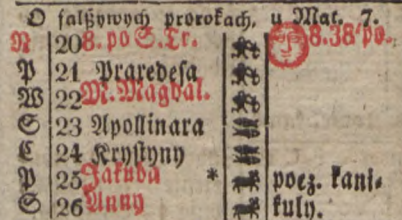 O falßywych prorokach, u Mat. 7.
N 20 8. po S. Tr. 8. 38' po.
P 21 Praxedesa
W 22 M. Magdal.
S 23 Apollinara
C 24 Krystyny
P 25 Jakuba * pocz. kani-
S 26 Anny kuly.